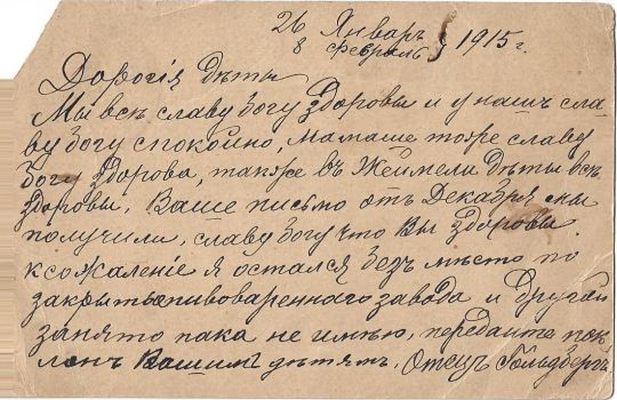 26 Январь } 1915 г.
8 февраль
Дорогiя дѣты
Мы всѣ славу богу здоровы и у нашъ сла-
ву богу спокойно, мамаше тоже славу
богу здорова, также въ Жеймели дѣты всѣ
здоровы. Ваше письмо отъ Декабря мы
получили, славу богу что вы здоровы.
ксожаленiе я остался безъ мѣсто по
закрытые пивоваренного завода и другой
занято пака не имѣю, передайте пок-
лонъ Вашимъ дѣтямъ. Отецъ Гольдбергъ